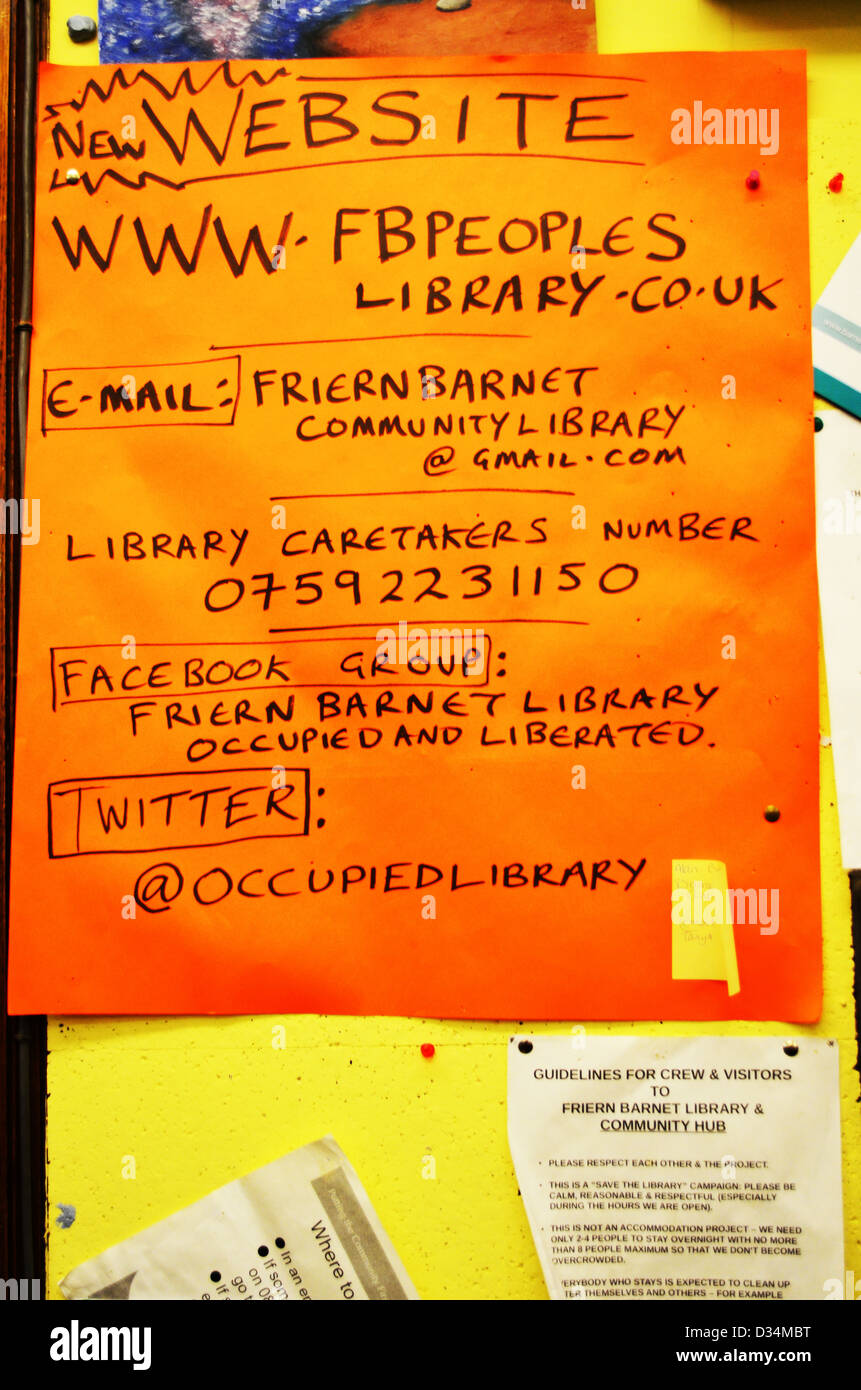 NEW WEBSITE
WWW. FBPEOPLES
LIBRARY.CO.UK
E-MAIL: FRIERNBARNET
COMMUNITYLIBRARY
@ GMAIL.COM
LIBRARY CARETAKERS NUMBER
07592231150
FACEBOOK GROUP:
FRIERN BARNET LIBRARY
OCCUPIED AND LIBERATED.
TWITTER:
@OCCUPIEDLIBRARY
Tanya
GUIDELINES FOR CREW & VISITORS
TO
FRIERN BARNET LIBRARY &
COMMUNITY HUB
• PLEASE RESPECT EACH OTHER & THE PROJECT.
• THIS IS A "SAVE THE LIBRARY" CAMPAIGN: PLEASE BE
CALM, REASONABLE & RESPECTFUL (ESPECIALLY
DURING THE HOURS WE ARE OPEN).
• THIS IS NOT AN ACCOMMODATION PROJECT – WE NEED
ONLY 2-4 PEOPLE TO STAY OVERNIGHT WITH NO MORE
THAN 8 PEOPLE MAXIMUM SO THAT WE DON'T BECOME
OVERCROWDED.
VERYBODY WHO STAYS IS EXPECTED TO CLEAN UP
TER THEMSELVES AND OTHERS – FOR EXAMPLE
Putting the Community Fir
Where to
• In an e
• If som
on 08
• If s
go t
alamy
Image ID: D34MBT
www.alamy.com